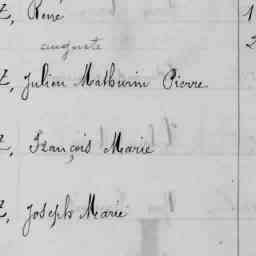 z, René 1
auguste 2
z, Julien Mathurin Pierre
z, François Marie
z, Joseph Marie